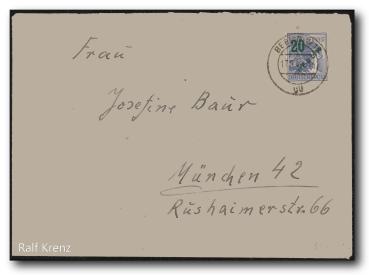 20
Frau
Josefine Baur
München 42
Rushaimerstr. 66
Ralf Krenz